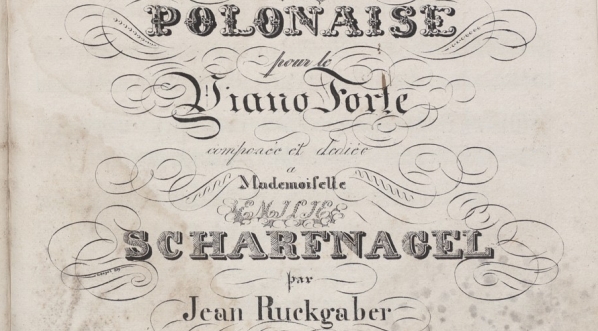 POLONAISE
pour le
Piano Forte
composée et dediée
a
Mademoiselle
EMILIE
SCHARFNAGEL
par
Jean Ruckgaber